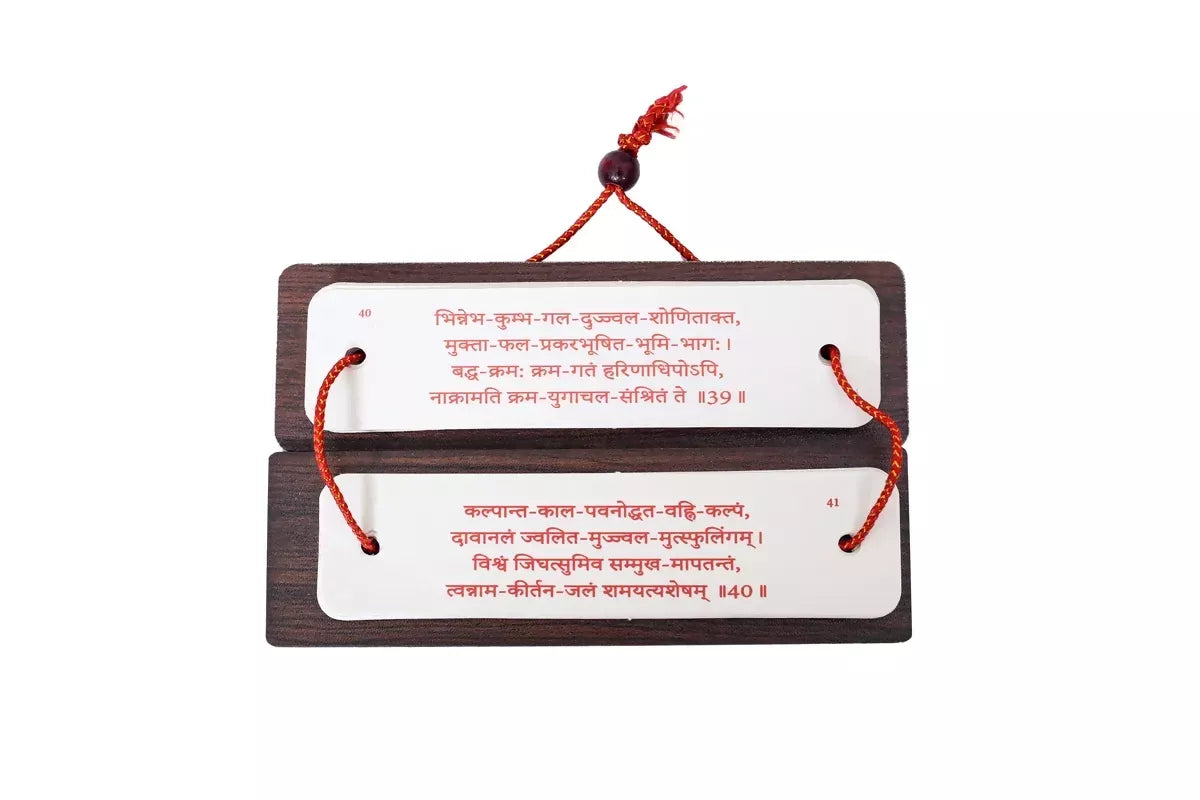 40
भिन्नेभ-कुम्भ-गल-दुज्ज्वल-शोणिताक्त,
मुक्ता-फल-प्रकरभूषित-भूमि-भाग: ।
बद्ध-क्रम: क्रम-गतं हरिणाधिपोऽपि,
नाक्रामति क्रम-युगाचल-संश्रितं ते ॥39॥
41
कल्पान्त-काल-पवनोद्धत-वह्नि-कल्पं,
दावानलं ज्वलित-मुज्ज्वल-मुत्स्फुलिंगम् ।
विश्वं जिघत्सुमिव सम्मुख-मापतन्तं,
त्वन्नाम-कीर्तन-जलं शमयत्यशेषम् ॥40॥